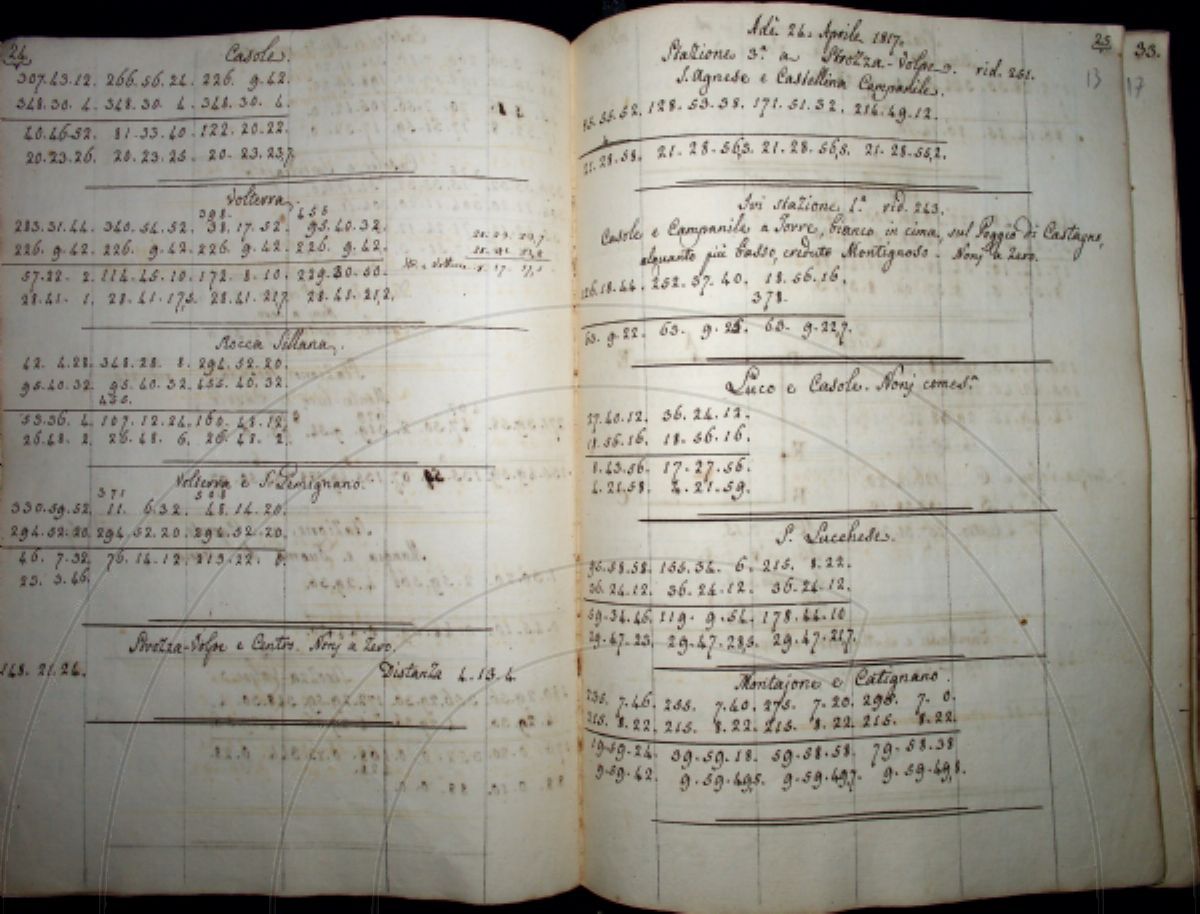 24.
Casole.
307.43.12. 266.56.24. 226. 9.42.
348.30. 4. 348.30. 4. 348.30. 4.
40.46.52. 81.33.40. 122.20.22.
20.23.26. 20.23.25. 20.23.23,7
Volterra.
398. 455
283.31.44. 340.54.52. 38.17.52. 95.40.32.
226. 9.42. 226. 9.42. 226. 9.42. 226. 9.42.
57.22. 2. 114.45.10. 172. 8.10. 229.30.50.
28.41. 1. 28.41.17,5. 28.41.21,7 28.41.21,2.
Rocca Sillana.
42. 4.28. 348.28. 8. 294.52.20.
95.40.32. 95.40.32. 455.40.32.
455.
53.36. 4. 107.12.24. 160.48.12.
26.48. 2. 26.48. 6. 26.48. 2.
Volterra e S. Gemignano.
371 508
330.59.52. 11. 6.32. 48.14.20.
294.52.20. 294.52.20. 294.52.20.
46. 7.32. 76.14.12. 213.22. 0.
23. 3.46.
Strozza-Volpe e Centro. Nonj a Zero.
148.21.24. Distanza 4.13.4.
Adì 24. Aprile 1817.
25
33.
13 17
Stazione 3.ª a Strozza-Volpe. rid. 251.
S. Agnese e Castellina Campanile.
128.53.38. 171.51.32. 214.49.12.
21.28.58. 21.28.56,3. 21.28.56,5. 21.28.55,2.
Ivi stazione 1.ª rid. 243.
Casole e Campanile a Torre, bianco in cima, sul Poggio di Castagno,
alquanto più basso, creduto Montignoso. Nonj a Zero.
126.18.44. 252.37.40. 18.56.16.
378.
63. 9.22. 63. 9.25. 63. 9.22,7.
Luco e Casole. Nonj come s.ª
27.40.12. 36.24.12.
18.56.16. 18.56.16.
8.43.56. 17.27.56.
4.21.58. 4.21.59.
S. Lucchese.
95.58.58. 155.34. 6. 215. 8.22.
36.24.12. 36.24.12. 36.24.12.
59.34.46. 119. 9.54. 178.44.10
29.47.23. 29.47.28,5. 29.47.21,7.
Montajone e Catignano.
235. 7.46. 255. 7.40. 275. 7.20. 295. 7. 0.
215. 8.22. 215. 8.22. 215. 8.22. 215. 8.22.
19.59.24. 39.59.18. 59.58.58. 79.58.38
9.59.42. 9.59.49,5. 9.59.49,7. 9.59.49,8.